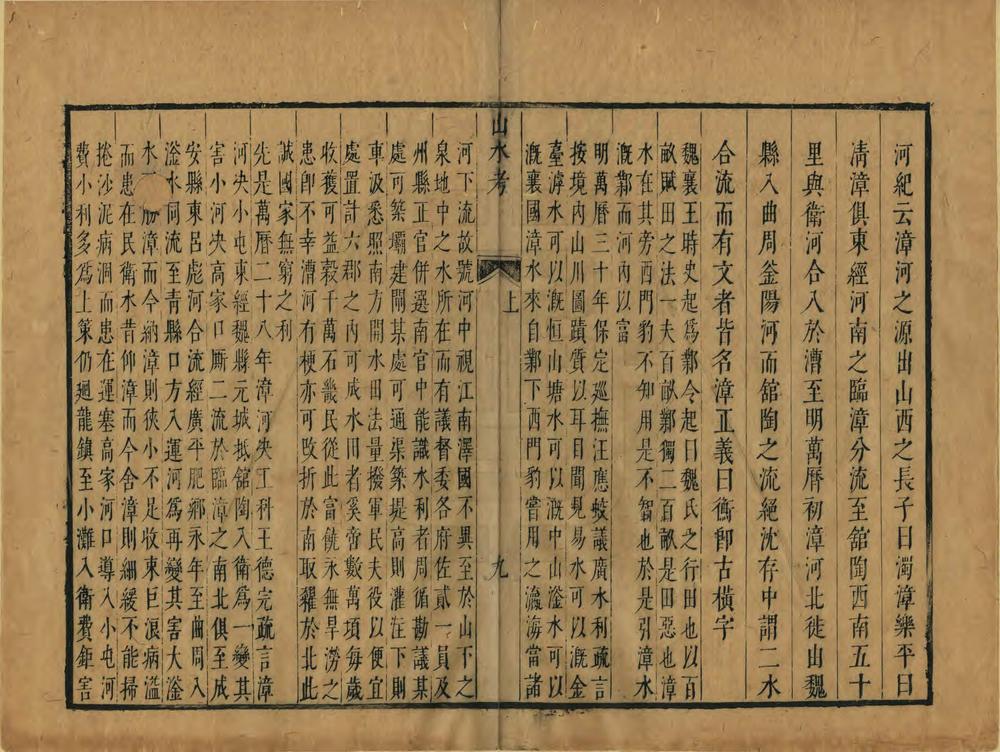 河紀云漳河之源出山西之長子曰濁漳樂平曰
清漳俱東經河南之臨漳分流至舘陶西南五十
里與衛河合入於漕至明萬曆初漳河北徙出魏
縣入曲周釜陽河而舘陶之流絕沈存中謂二水
合流而有文者皆名漳正義曰衡卽古橫字
魏襄王時史起爲鄴令起曰魏氏之行田也以百
畝賦田之法一夫百畝鄴獨二百畝是田惡也漳
水在其旁西門豹不知用是不智也於是引漳水
溉鄴而河內以富
明萬曆三十年保定巡撫汪應蛟議廣水利疏言
按境內山川圖蹟質以耳目聞見易水可以溉金
臺滹水可以溉恒山塘水可以溉中山滏水可以
溉襄國漳水來自鄴下西門豹嘗用之瀛海當諸
山水考
上
九
河下流故號河中視江南澤國不異至於山下之
泉地中之水所在而有議督委各府佐貳一員及
州縣正官併選南官中能識水利者周循勘議某
處可築壩建閘某處可通渠築堤高則灌注下則
車汲悉照南方開水田法量撥軍民夫役以便宜
處置計六郡之內可成水田者奚啻數萬頃每歲
收穫可益穀千萬石畿民從此富饒永無旱澇之
患卽不幸漕河有梗亦可改折於南取糴於北此
誠國家無窮之利
先是萬曆二十八年漳河決工科王德完疏言漳
河決小屯東經魏縣元城抵舘陶入衛爲一變其
害小河決高家口厮二流於臨漳之南北俱至成
安縣東呂彪河合流經廣平肥鄉永年至曲周入
滏水同流至青縣口方入運河爲再變其害大滏
水勝漳而今納漳則狹小不足收東巨浪病溢
而患在民衛水昔仰漳而今舍漳則細緩不能掃
捲沙泥病涸而患在運塞高家河口導入小屯河
費小利多爲上策仍廻龍鎮至小灘入衛費鉅害